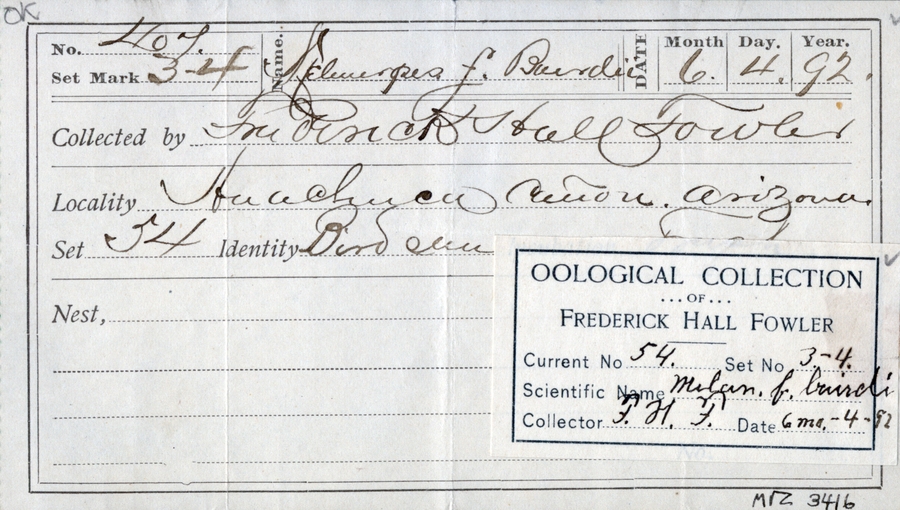 OK
No. 407. Name. Melanerpes f. Bairdii DATE Month Day. Year.
Set Mark 3-4 6. 4. 92.
Collected by Frederick Hall Fowler
Locality Huachuca Cañon. Arizona.
Set 54 Identity Bird seen
Nest,
OOLOGICAL COLLECTION
...OF...
FREDERICK HALL FOWLER
Current No 54. Set No 3-4.
Scientific Name Melan. f. bairdi
Collector F. H. F. Date 6 mo.-4-92
MVZ 3416